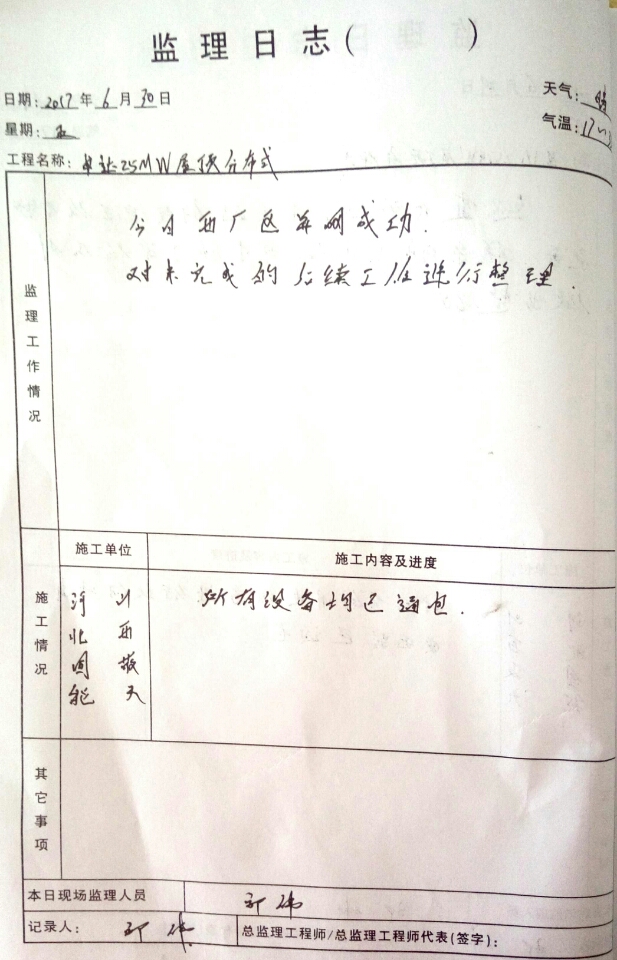 监理日志( )
日期:2017年6月30日
天气:晴
星期:五
气温:17~
工程名称: 25MW屋顶分布式
监理工作情况
今日西厂区并网成功.
对未完成的后续工作进行整理.
施工单位
施工内容及进度
施工情况
河北国能
山西
所有设备均已通电.
其它事项
本日现场监理人员
伟
记录人: 伟
总监理工程师/总监理工程师代表(签字):